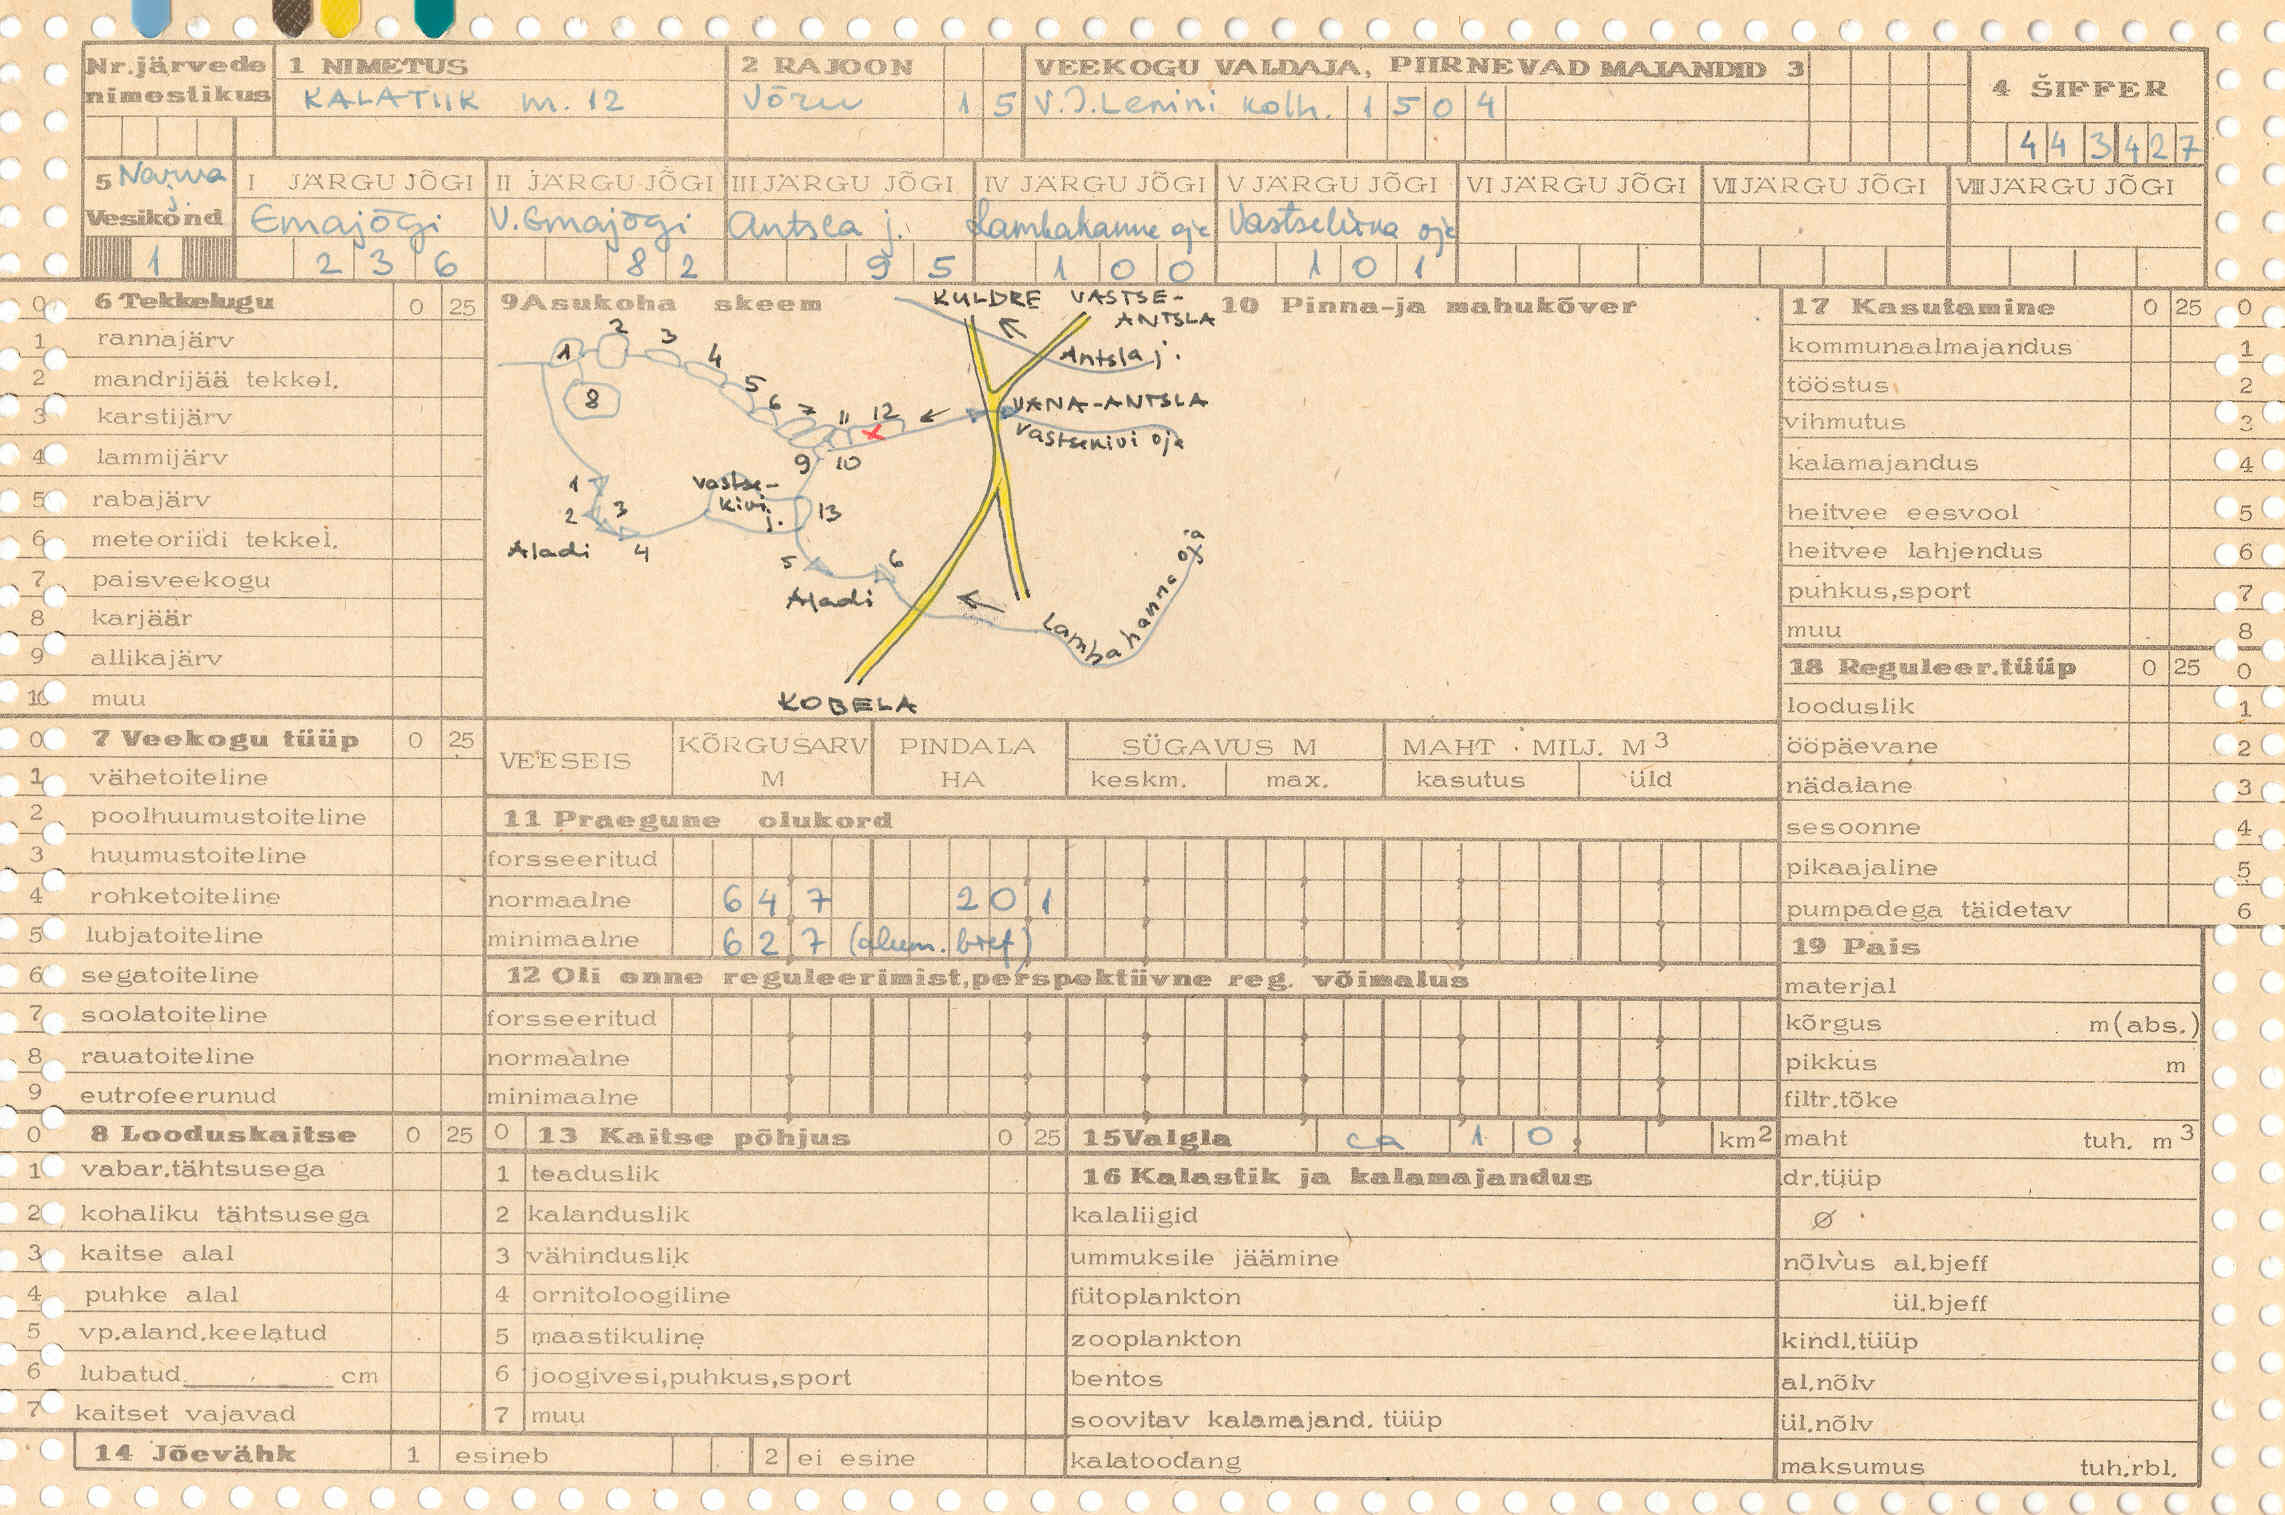 Nr.järvede nimestikus
1 NIMETUS
KALATIIK nr. 12
2 RAJOON
Võru 1 5
VEEKOGU VALDAJA, PIIRNEVAD MAJANDID 3
V.I.Lenini kolh. 1 5 0 4
4 ŠIFFER
4 4 3 4 2 7
5 Narva j.
Vesikond
1
I JÄRGU JÕGI
Emajõgi
2 3 6
II JÄRGU JÕGI
V.Emajõgi
8 2
III JÄRGU JÕGI
Antsla j.
9 5
IV JÄRGU JÕGI
Lambahanna oja
1 0 0
V JÄRGU JÕGI
1 0 1
VI JÄRGU JÕGI
VII JÄRGU JÕGI
VIII JÄRGU JÕGI
0 6 Tekkelugu 0 25
1 rannajärv
2 mandrijää tekkel.
3 karstijärv
4 lammijärv
5 rabajärv
6 meteoriidi tekkel.
7 paisveekogu
8 karjäär
9 allikajärv
10 muu
0 7 Veekogu tüüp 0 25
1 vähetoiteline
2 poolhuumustoiteline
3 huumustoiteline
4 rohketoiteline
5 lubjatoiteline
6 segatoiteline
7 soolatoiteline
8 rauatoiteline
9 eutrofeerunud
0 8 Looduskaitse 0 25
1 vabar.tähtsusega
2 kohaliku tähtsusega
3 kaitse alal
4 puhke alal
5 vp.aland.keelatud
6 lubatud cm
7 kaitset vajavad
14 Jõevähk 1 esineb 2 ei esine
9 Asukoha skeem
KULDRE
VASTSE-
ANTSLA
Antsla j.
1 2 3 4 5 6 7 8
11 12
VANA-ANTSLA
Vastsekivi oja
9 10
Vastse-
kivi
j.
13
1
2 3
4
Aladi
5 6
Aladi
Lambahanna oja
KOBELA
10 Pinna-ja mahukõver
VEESEIS
KÕRGUSARV M
PINDALA HA
SÜGAVUS M
keskm. max.
MAHT MILJ. M3
kasutus üld
11 Praegune olukord
forsseeritud
normaalne 6 4 7 2 0 1
minimaalne 6 2 7 (alum. bjef)
12 Oli enne reguleerimist,perspektiivne reg. võimalus
forsseeritud
normaalne
minimaalne
0 13 Kaitse põhjus 0 25
1 teaduslik
2 kalanduslik
3 vähinduslik
4 ornitoloogiline
5 maastikuline
6 joogivesi,puhkus,sport
7 muu
15 Valgla ca 1 0 km2
16 Kalastik ja kalamajandus
kalaliigid
ummuksile jäämine
fütoplankton
zooplankton
bentos
soovitav kalamajand. tüüp
kalatoodang
17 Kasutamine 0 25 0
kommunaalmajandus 1
tööstus 2
vihmutus 3
kalamajandus 4
heitvee eesvool 5
heitvee lahjendus 6
puhkus,sport 7
muu 8
18 Reguleer.tüüp 0 25 0
looduslik 1
ööpäevane 2
nädalane 3
sesoonne 4
pikaajaline 5
pumpadega täidetav 6
19 Pais
materjal
kõrgus m(abs.)
pikkus m
filtr.tõke
maht tuh. m3
dr.tüüp
Ø
nõlvus al.bjeff
ül.bjeff
kindl.tüüp
al.nõlv
ül.nõlv
maksumus tuh.rbl.